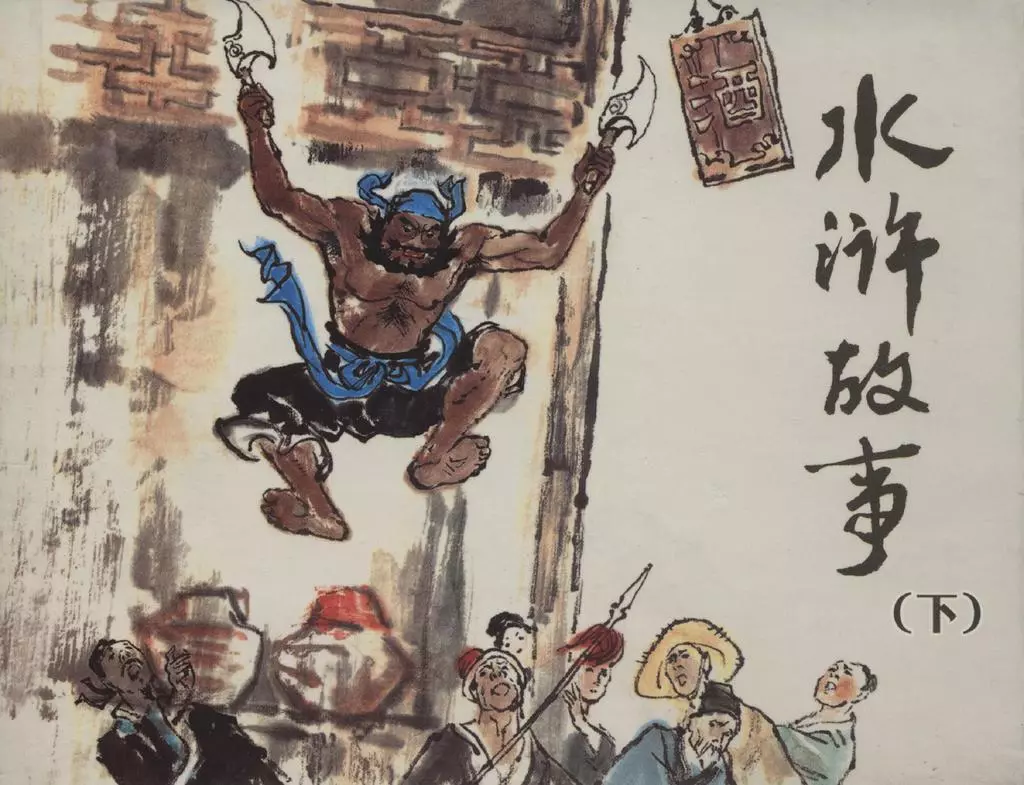 水浒故事
（下）
酒